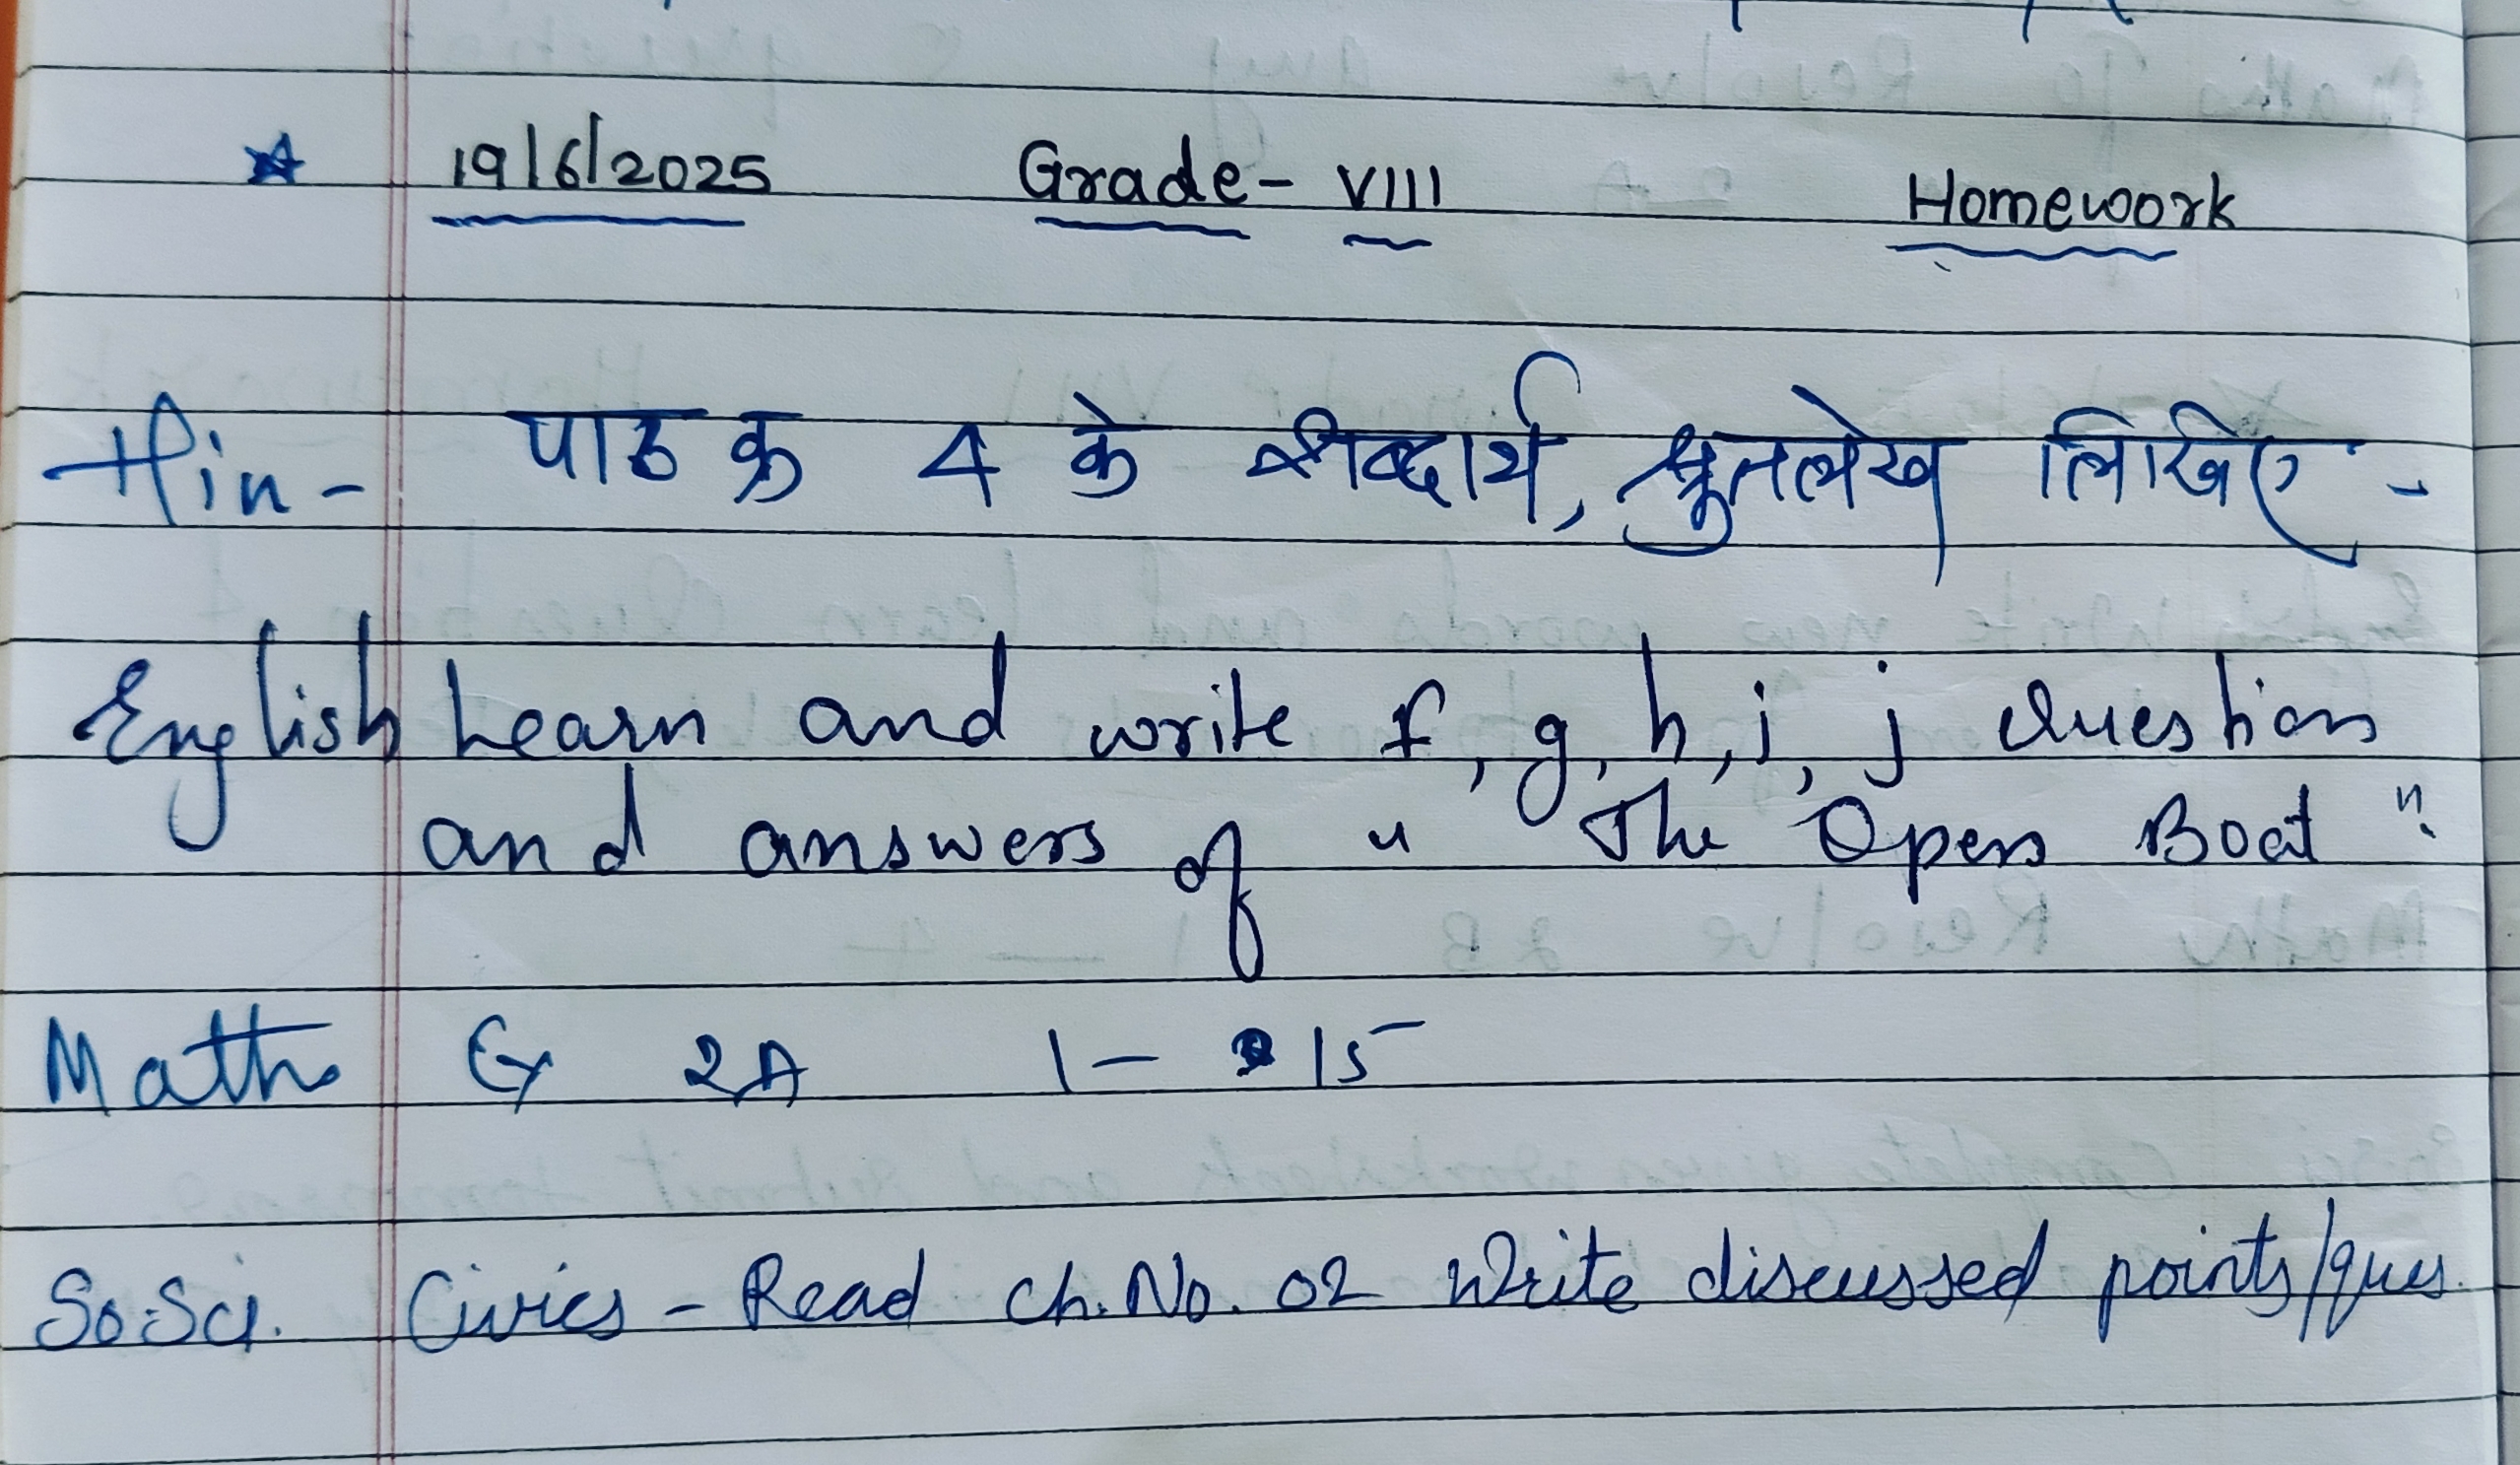 19/6/2025 Grade- VIII Homework
Hin- पाठ क्र 4 के शब्दार्थ, श्रुतलेख लिखिए -
English Learn and write f, g, h, i, j Question
and answers of " The Open Boat ".
Maths Ex 2A 1 - 15
So.Sci. Civics - Read ch. No. 02 Write discussed points/ques.